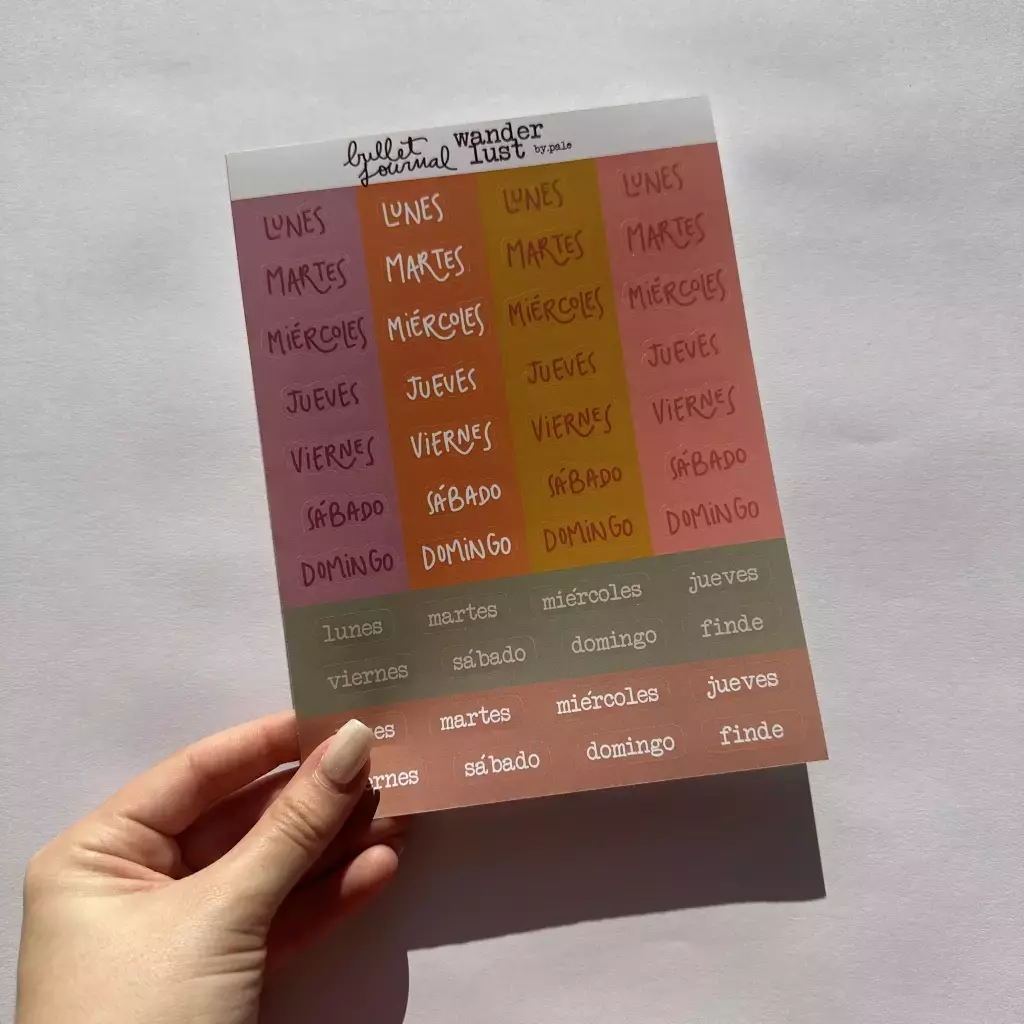 bullet journal wander lust by.pale
LUNES LUNES LUNES LUNES
MARTES MARTES MARTES MARTES
MIÉRCOLES MIÉRCOLES MIÉRCOLES MIÉRCOLES
JUEVES JUEVES JUEVES JUEVES
VIERNES VIERNES VIERNES VIERNES
SÁBADO SÁBADO SÁBADO SÁBADO
DOMINGO DOMINGO DOMINGO DOMINGO
lunes martes miércoles jueves
viernes sábado domingo finde
es martes miércoles jueves
ernes sábado domingo finde